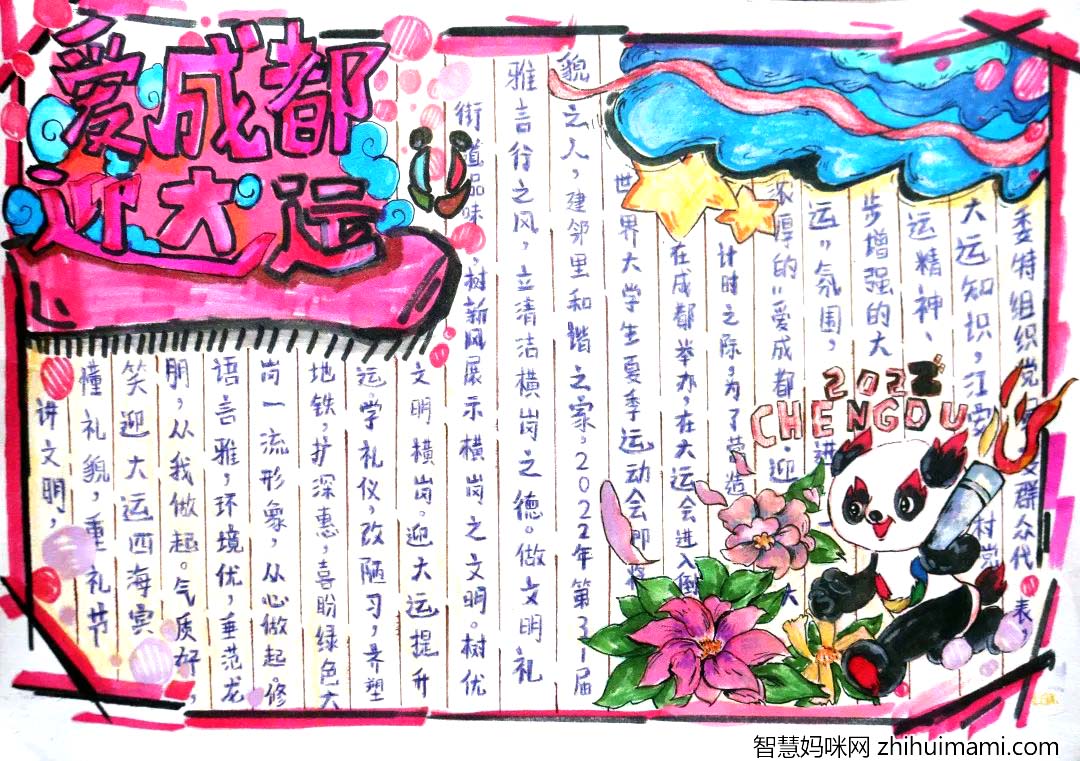 爱成都
迎大运
讲文明，
懂礼貌，重礼节
笑迎大运四海宾
朋，从我做起。气质好，
语言雅，环境优，垂范龙
岗一流形象，从心做起。修
地铁，护深惠，喜盼绿色大
运。学礼仪，改陋习，养塑
文明横岗。迎大运提升
街道品味，树新风展示横岗之文明。树优
雅言行之风，立清洁横岗之德。做文明礼
貌之人，建邻里和谐之家，2022年第31届
世界大学生夏季运动会即将
在成都举办，在大运会进入倒
计时之际，为了营造
浓厚的“爱成都·迎大
运”氛围，进一
步增强的大
运精神、
大运知识，江安村党
委特组织党群众代表，
2022
CHENGDU
智慧妈咪网 zhihuimami.com